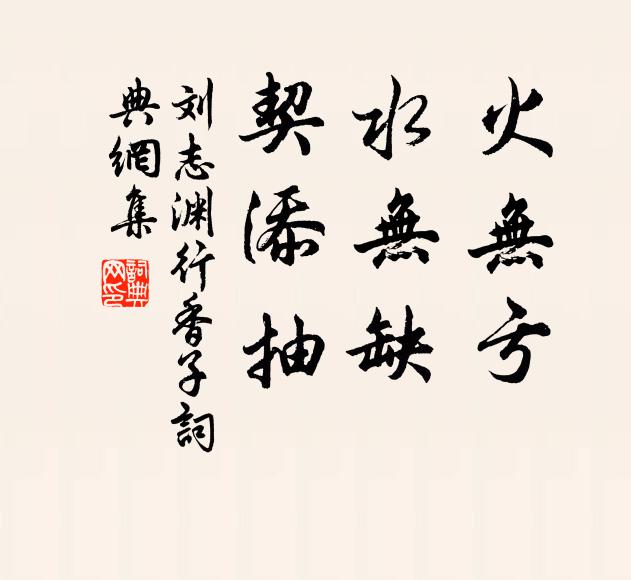 火無亏
水無缺
契添抽
刘志渊行香子詞
典網集
詞典
网印